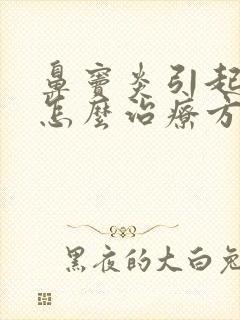 鼻窦炎引起
怎麼治療方
黑夜的大白兔